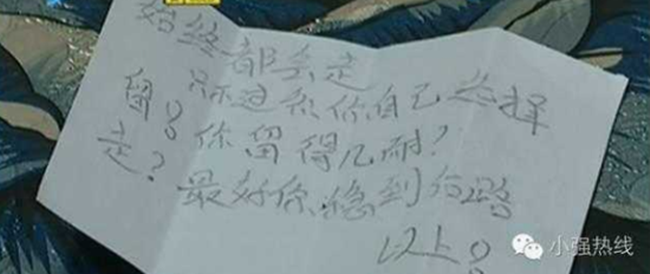 始终都会走
只不过系你自己选择
留？你留得几耐？
走？最好你稳到
以上？
小强热线